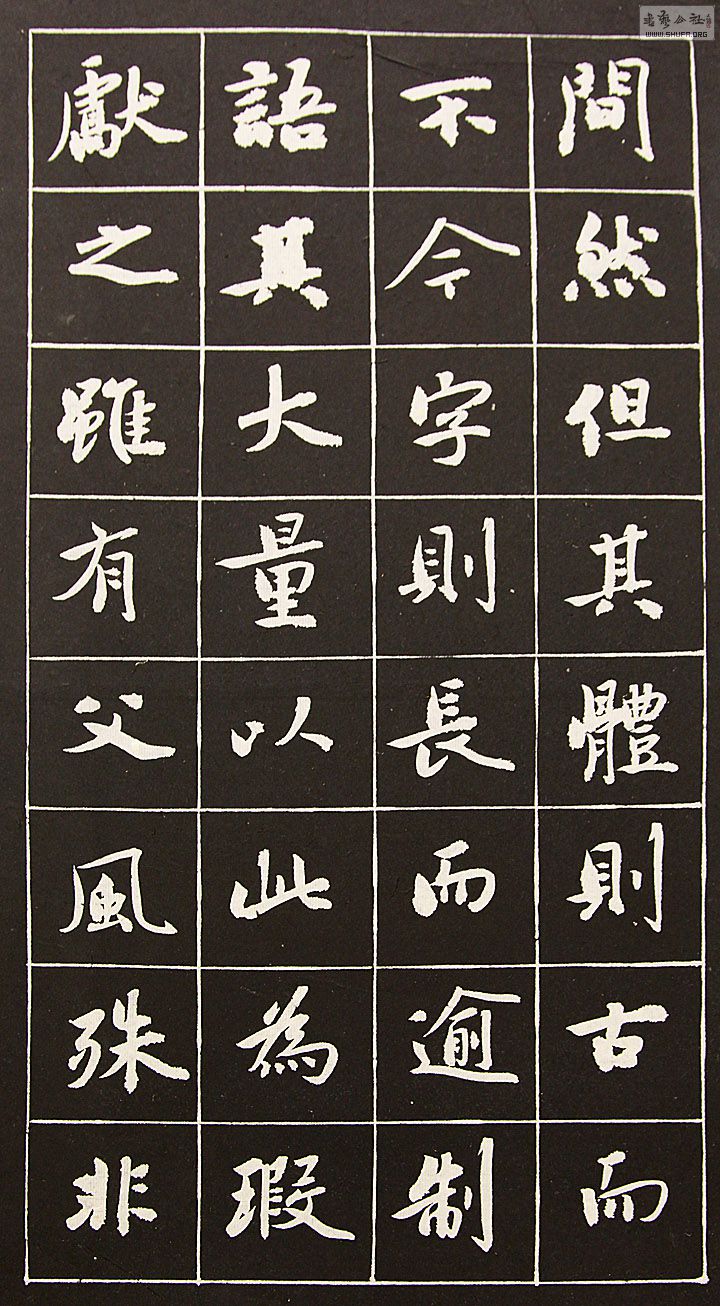 間然但其體則古而
不今字則長而逾制
語其大量以此為瑕
獻之雖有父風殊非
WWW.SHUFA.ORG